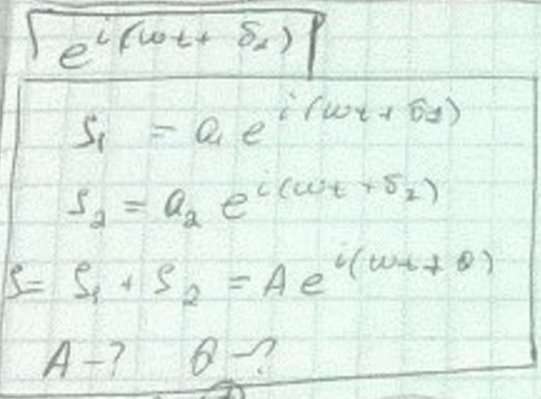 e^{i(ωt + δ_1)}
S_1 = a_1 e^{i(ωt + δ_1)}
S_2 = a_2 e^{i(ωt + δ_2)}
S = S_1 + S_2 = A e^{i(ωt + θ)}
A - ? θ - ?